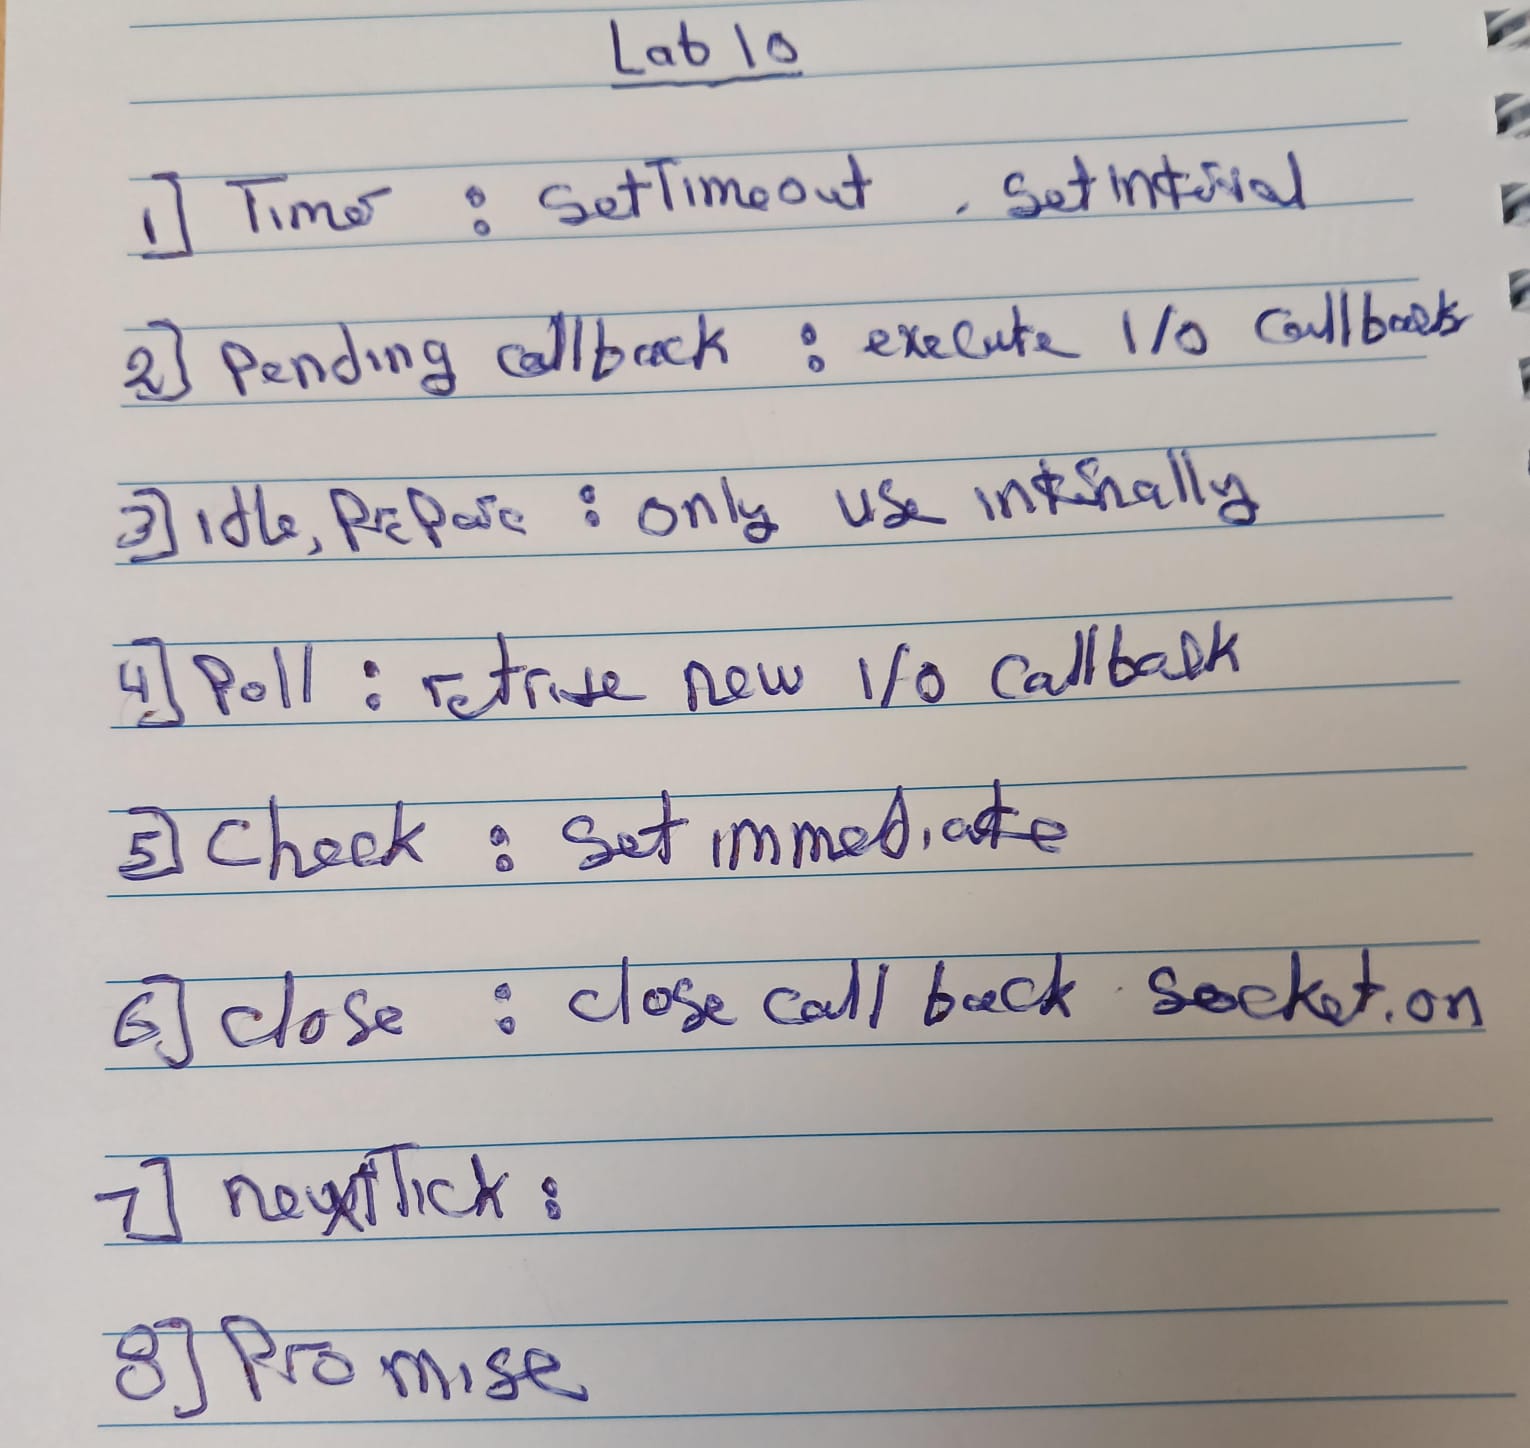 Lab 10
1] Timer : SetTimeout , Set Interval
2] Pending callback : execute I/O Callbacks
3] idle, Prepare : only use internally
4] Poll : retrive new I/O Callback
5] Check : Set immediate
6] close : close call back socket.on
7] nextTick :
8] Promise